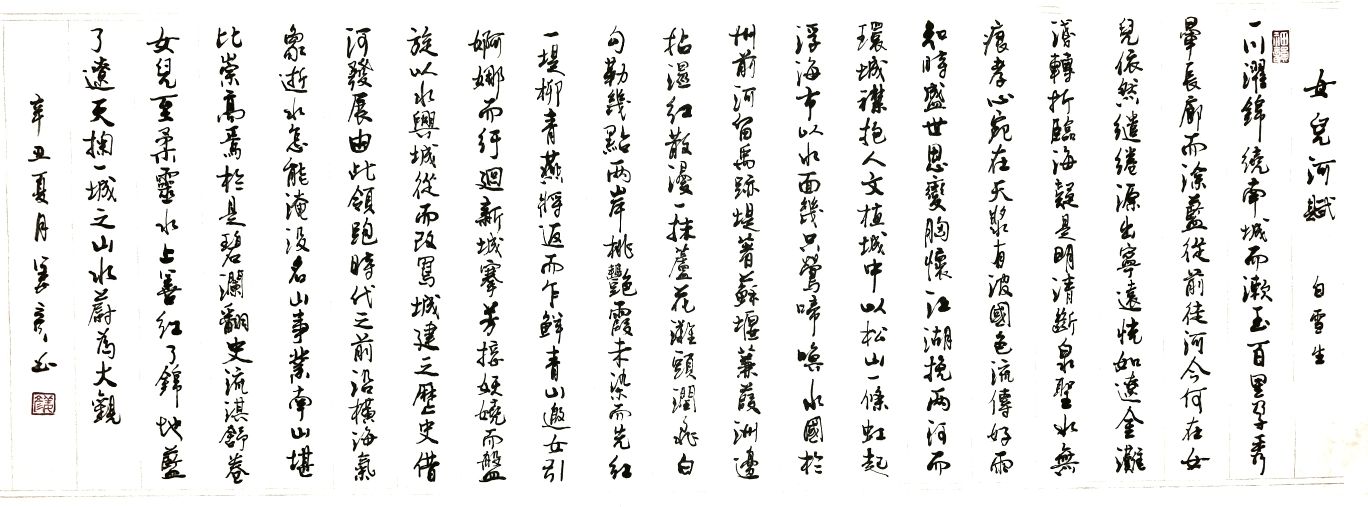 女兒河賦 白雪生
一川濯錦繞南城而漱玉百里孕秀
暈長廊而涂藍從前徒河今何在女
兒依然繾綣源出寧遠恍如遼金灘
濤轉折臨海疑是明清斷泉聖水無
痕孝心宛在天漿有波國色流傳好雨
知時盛世思變胸懷江湖挽兩河而
環城襟抱人文植城中以松山一條虹起
浮海市以水面幾只鶯啼喚水國於
州前河留禹跡堤著蘇堰蒹葭洲邊
拈濕紅散漫一抹蘆花灘頭潤飛白
勾勒幾點兩岸桃艷霞未染而先紅
一堤柳青燕將返而乍鮮青山邀女引
婀娜而紆迴新城搴芳接妖嬈而盤
旋以水興城從而改寫城建之歷史借
河發展由此領跑時代之前沿橫海氣
象逝水怎能淹沒名山事業南山堪
比崇高焉於是碧瀾翻史流淇舒卷
女兒至柔靈水上善紅了錦地藍
了遼天掬一城之山水蔚為大觀
辛丑夏月